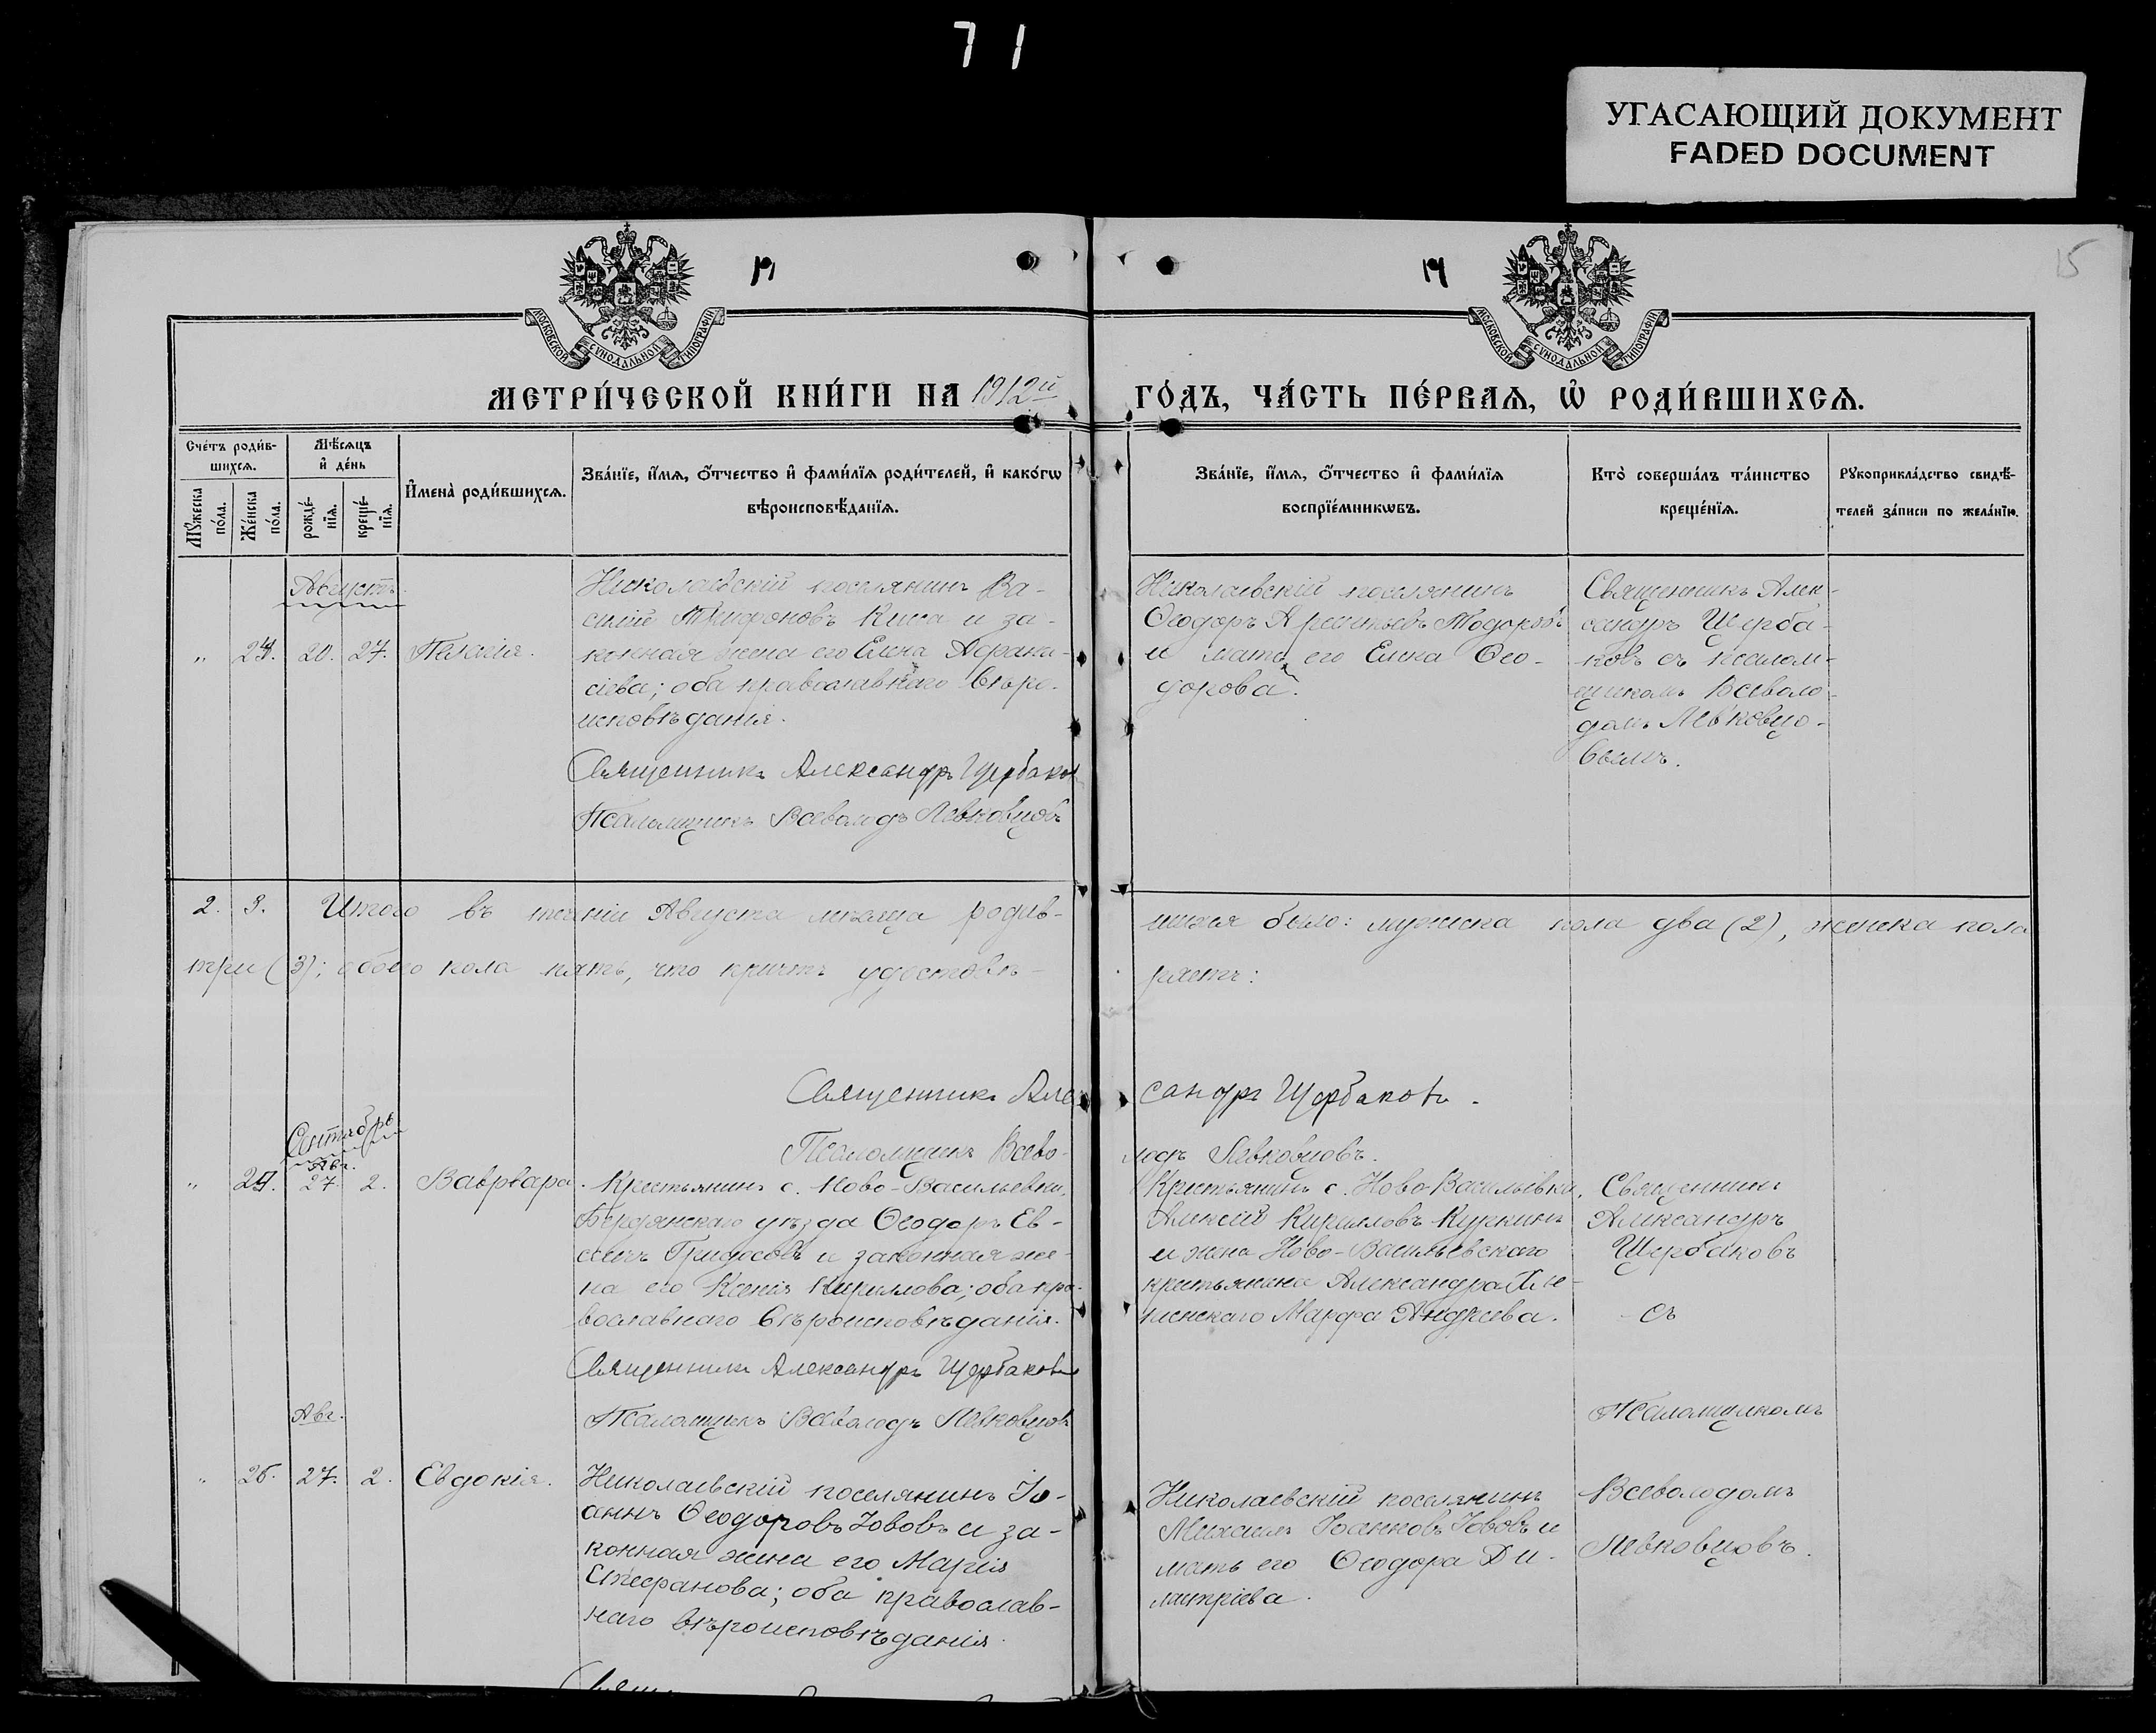 71
УГАСАЮЩИЙ ДОКУМЕНТ
FADED DOCUMENT
15
14
14
МОСКОВСКОЙ СѴНОДАЛЬНОЙ ТИПОГРАФІИ
МОСКОВСКОЙ СѴНОДАЛЬНОЙ ТИПОГРАФІИ
МЕТРИ́ЧЕСКОЙ КНИ́ГИ НА 1912й ГО́ДЪ, ЧА́СТЬ ПЕ́РВАѦ, Ѽ РОДИ́ВШИХСѦ.
Сче́тъ роди́в-
шихсѧ.
Мѣ́сѧцъ
и҆ де́нь
Мꙋ́жеска
по́ла.
Же́нска
по́ла.
рожде́-
нїѧ.
креще́-
нїѧ.
И҆мена̀ роди́вшихсѧ.
Зва́нїе, и҆́мѧ, ѻ҆́тчество и҆ фами́лїѧ роди́телей, и҆ како́гѡ
вѣроисповѣ́данїѧ.
Зва́нїе, и҆́мѧ, ѻ҆́тчество и҆ фами́лїѧ
воспрїе́мникѡвъ.
Кто̀ соверша́лъ та́инство
креще́нїѧ.
Рꙋкоприкла́дство свидѣ́-
телей за́писи по жела́нїю.
Августъ.
„ 24. 20. 27. Пелагія.
Николаевскій поселянинъ Ва-
силій Трифоновъ Киса и за-
конная жена его Елена Афана-
сіева; оба православнаго вѣро-
исповѣданія.
Священникъ Александръ Щербаков
Псаломщикъ Всеволодъ Левковцовъ
Николаевскій поселянинъ
Ѳеодоръ Арсентьевъ Тодоровъ
и мать его Елена Ѳео-
дорова.
Священникъ Алек-
сандръ Щерба-
ковъ съ псалом-
щикомъ Всеволо-
домъ Левковцо-
вымъ.
2. 3. Итого въ теченіи Августа мѣсяца родив-
шихся было: мужеска пола два (2), женска пола
три (3); обоего пола пять, что причтъ удостовѣ-
ряетъ:
Священникъ Александръ Щербаковъ.
Псаломщикъ Всеволодъ Левковцовъ.
Сентябрь
Авг.
„ 25. 27. 2. Вавр͏вара.
Крестьянинъ с. Ново-Васильевки,
Бердянскаго уѣзда Ѳеодоръ Ев-
на его Ксенія Кириллова; оба пра-
вославнаго вѣроисповѣданія.
Священникъ Александръ Щербаковъ
Псаломщикъ Всеволодъ Левковцовъ
Крестьянинъ с. Ново-Васильевки,
Алексій Кирилловъ Куркинъ
и жена Ново-Васильевскаго
крестьянина Александра
Марфа Андреева.
Священникъ
Александръ
Щербаковъ
съ
Псаломщикомъ
Всеволодомъ
Левковцовъ.
Авг.
„ 26. 27. 2. Евдокія.
Николаевскій поселянинъ Іо-
аннъ Ѳеодоровъ Іововъ и за-
конная жена его Марія
Стефанова; оба православ-
наго вѣроисповѣданія.
Николаевскій поселянинъ
Михаилъ Іоанновъ Іововъ и
мать его Ѳеодора Ди-
митріева.